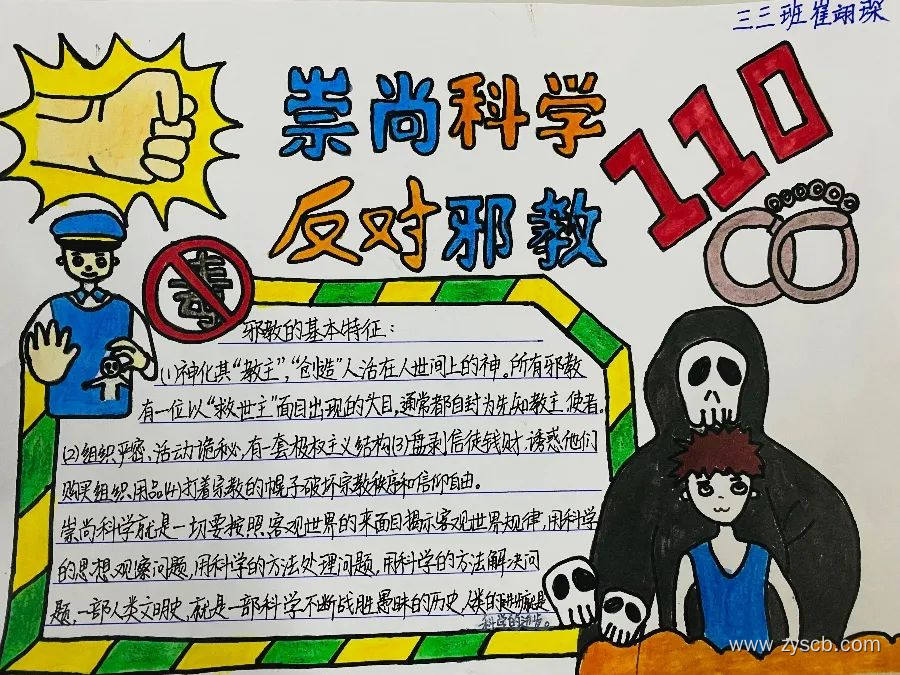 三三班崔翊琛
崇尚科学
反对邪教
110
毒
邪教的基本特征：
(1)神化其“教主”，“创造”人活在人世间上的神。所有邪教
有一位以“救世主”面目出现的头目，通常都自封为先知教主、使者。
(2)组织严密、活动诡秘，有一套极权主义结构(3)盘剥信徒钱财，诱惑他们
购买组织用品(4)打着宗教的幌子破坏宗教秩序和信仰自由。
崇尚科学就是一切要按照客观世界的来面目揭示客观世界规律，用科学
的思想观察问题，用科学的方法处理问题，用科学的方法解决问
题，一部人类文明史，就是一部科学不断战胜愚昧的历史，人类的进步就是
科学的进步。
www.zyscb.com